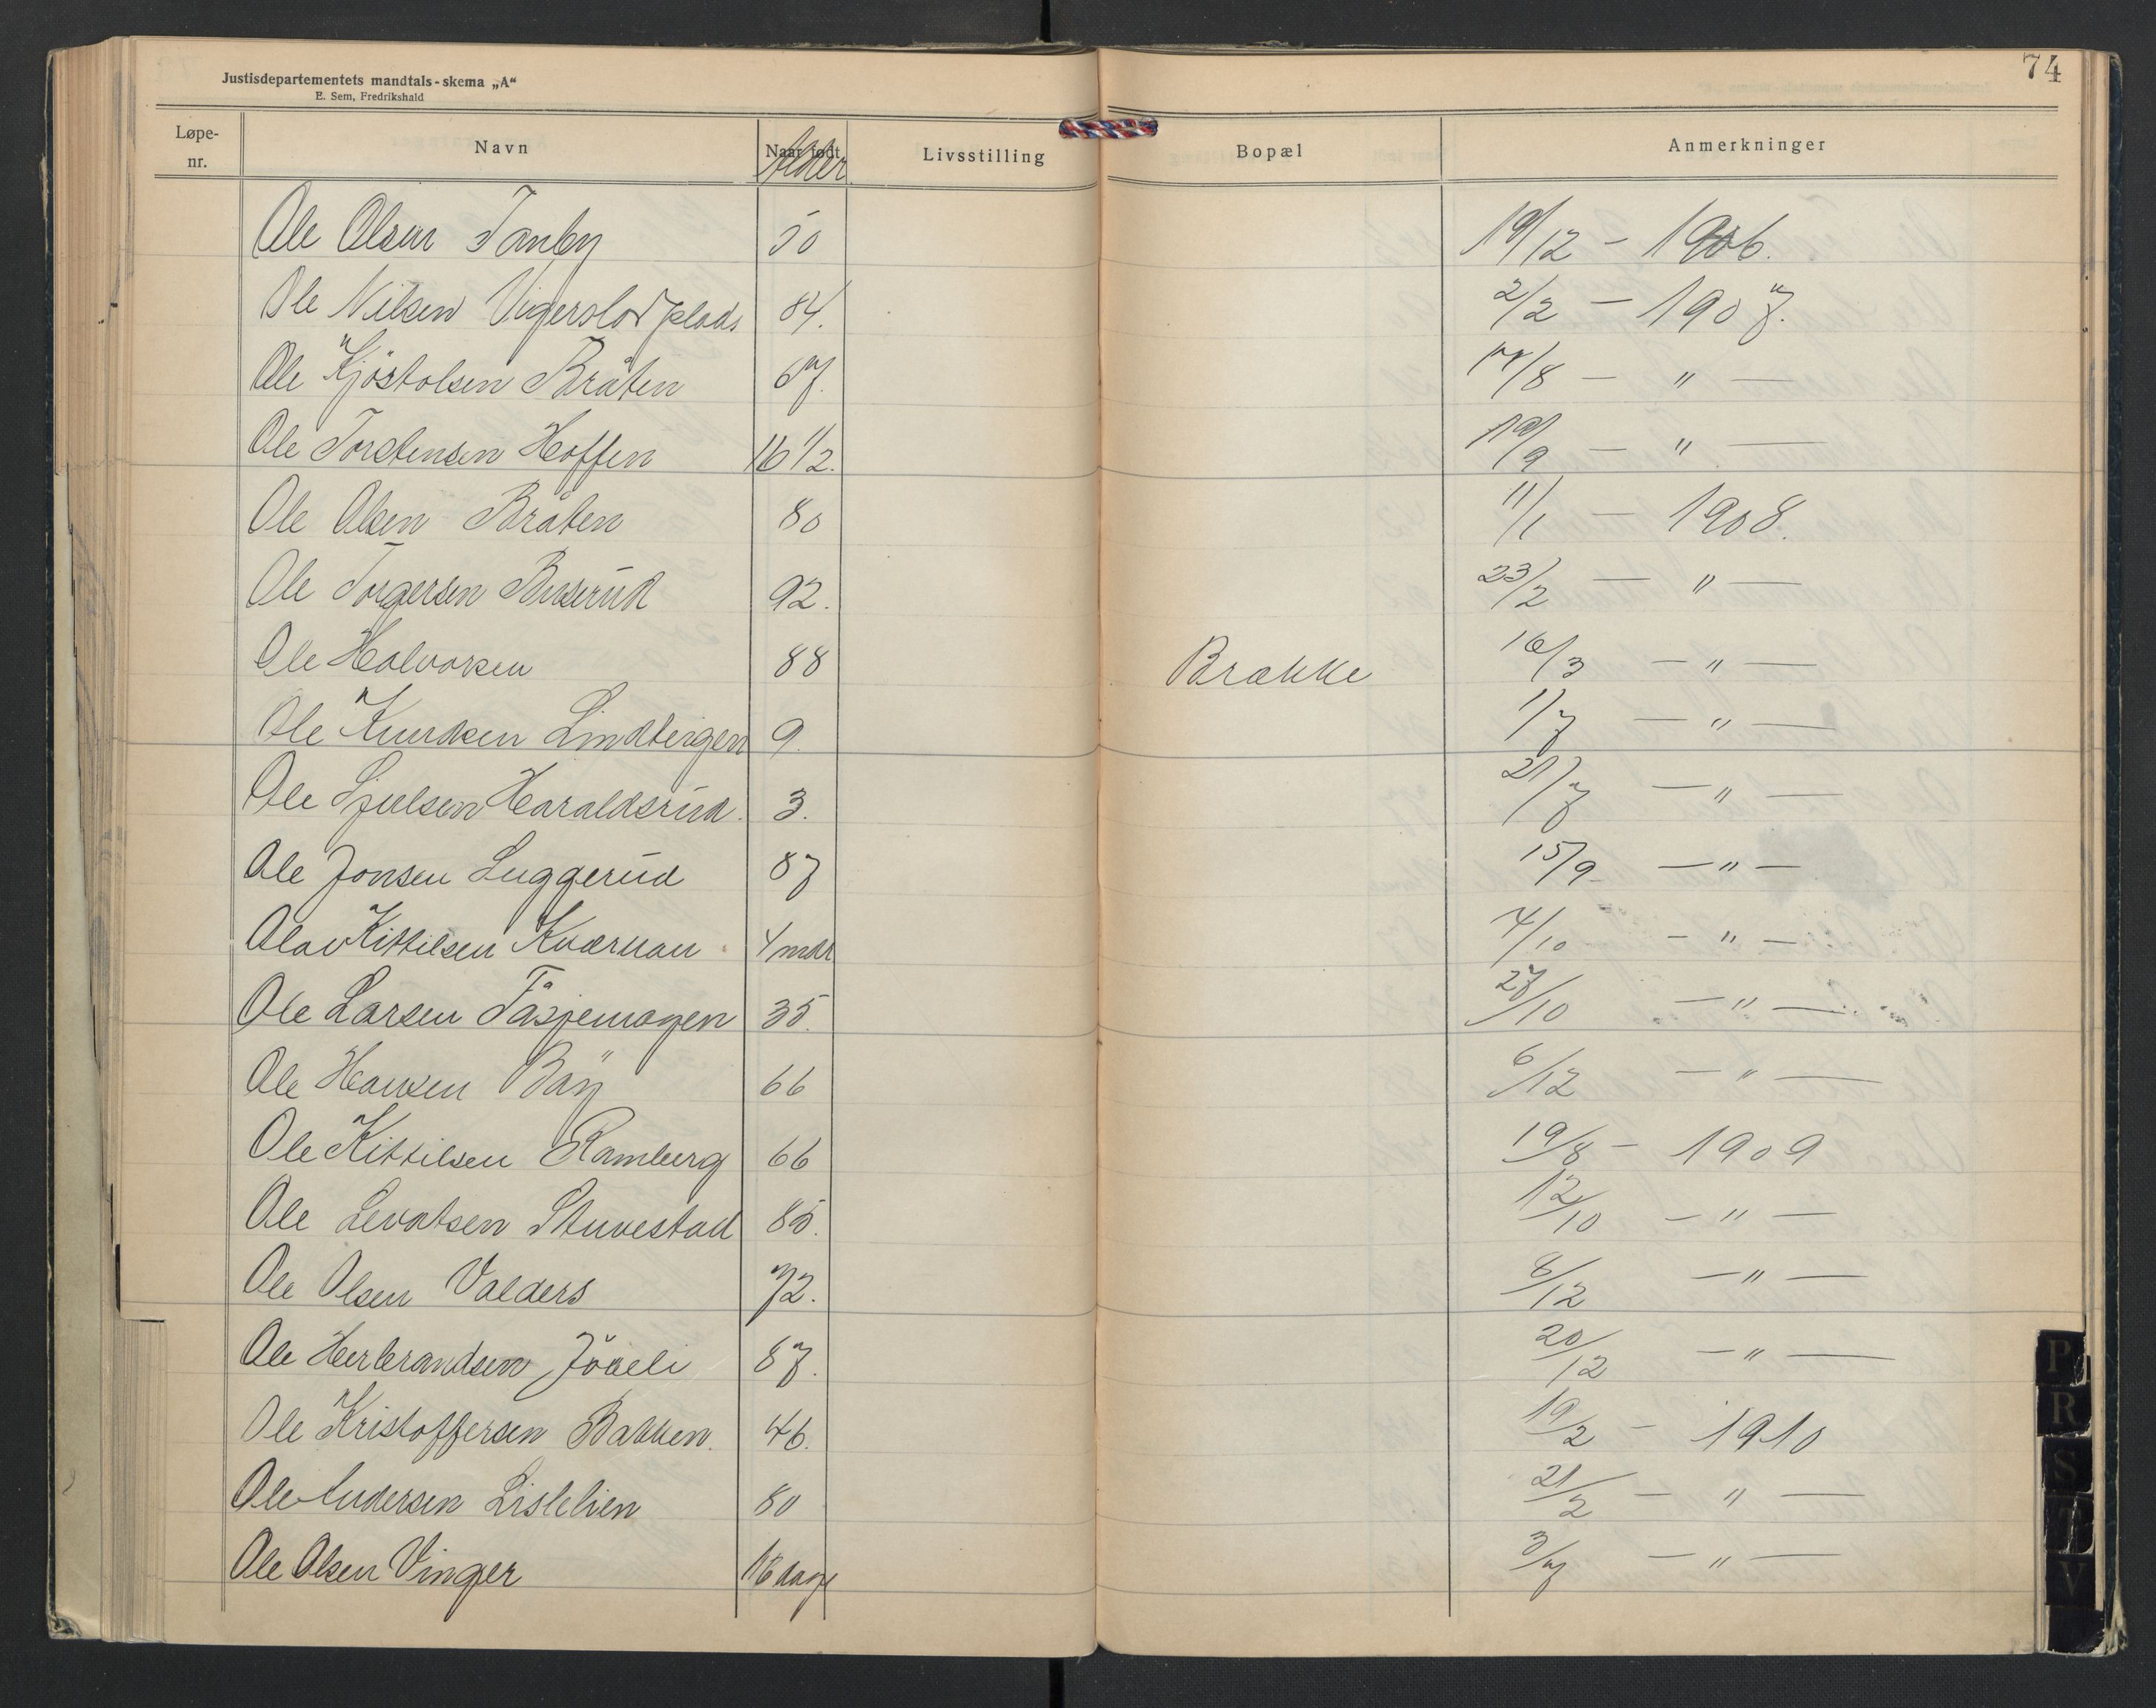 74
Justisdepartementets mandtals-skema „A“
E. Sem, Fredrikshald
Løpe-nr. Navn Naar født Alder Livsstilling Bopæl Anmerkninger
Ole Olsen Tanby 50 19/12 - 1906.
Ole Nilsen Vigerslovplads 84. 2/2 - 1907.
Ole Kjöstolsen Bråten 67. 14/8 - " -
Ole Torstensen Hoffen 16 1/2. 19/9 - " -
Ole Olsen Bråten 80 11/1 - 1908.
Ole Torgersen Buserud 92. 23/2 - " -
Ole Halvorsen 88 Brække 16/3 - " -
Ole Knudsen Lindteigen 9. 1/7 - " -
Ole Haraldsrud. 3. 21/7 - " -
Ole Jonsen Luggerud 87 15/9 - " -
Olav Kittilsen Kværnan 4 mdr 4/10 - " -
Ole Larsen 35. 27/10 - " -
Ole Hansen Bäy 66 6/12 - " -
Ole Kittilsen Ramberg 66 19/8 - 1909
Ole Levatsen Stuvestad 85. 12/10 - " -
Ole Olsen Valders 72. 8/12 - " -
Ole Herbrandsen Jöueli 87. 20/12 - " -
Ole Kristoffersen Bakken. 46. 19/2 - 1910
Ole Andersen Lislelien 80 21/2 - " -
Ole Olsen Vinger 18 dage 3/7 - " -
P
R
S
T
V